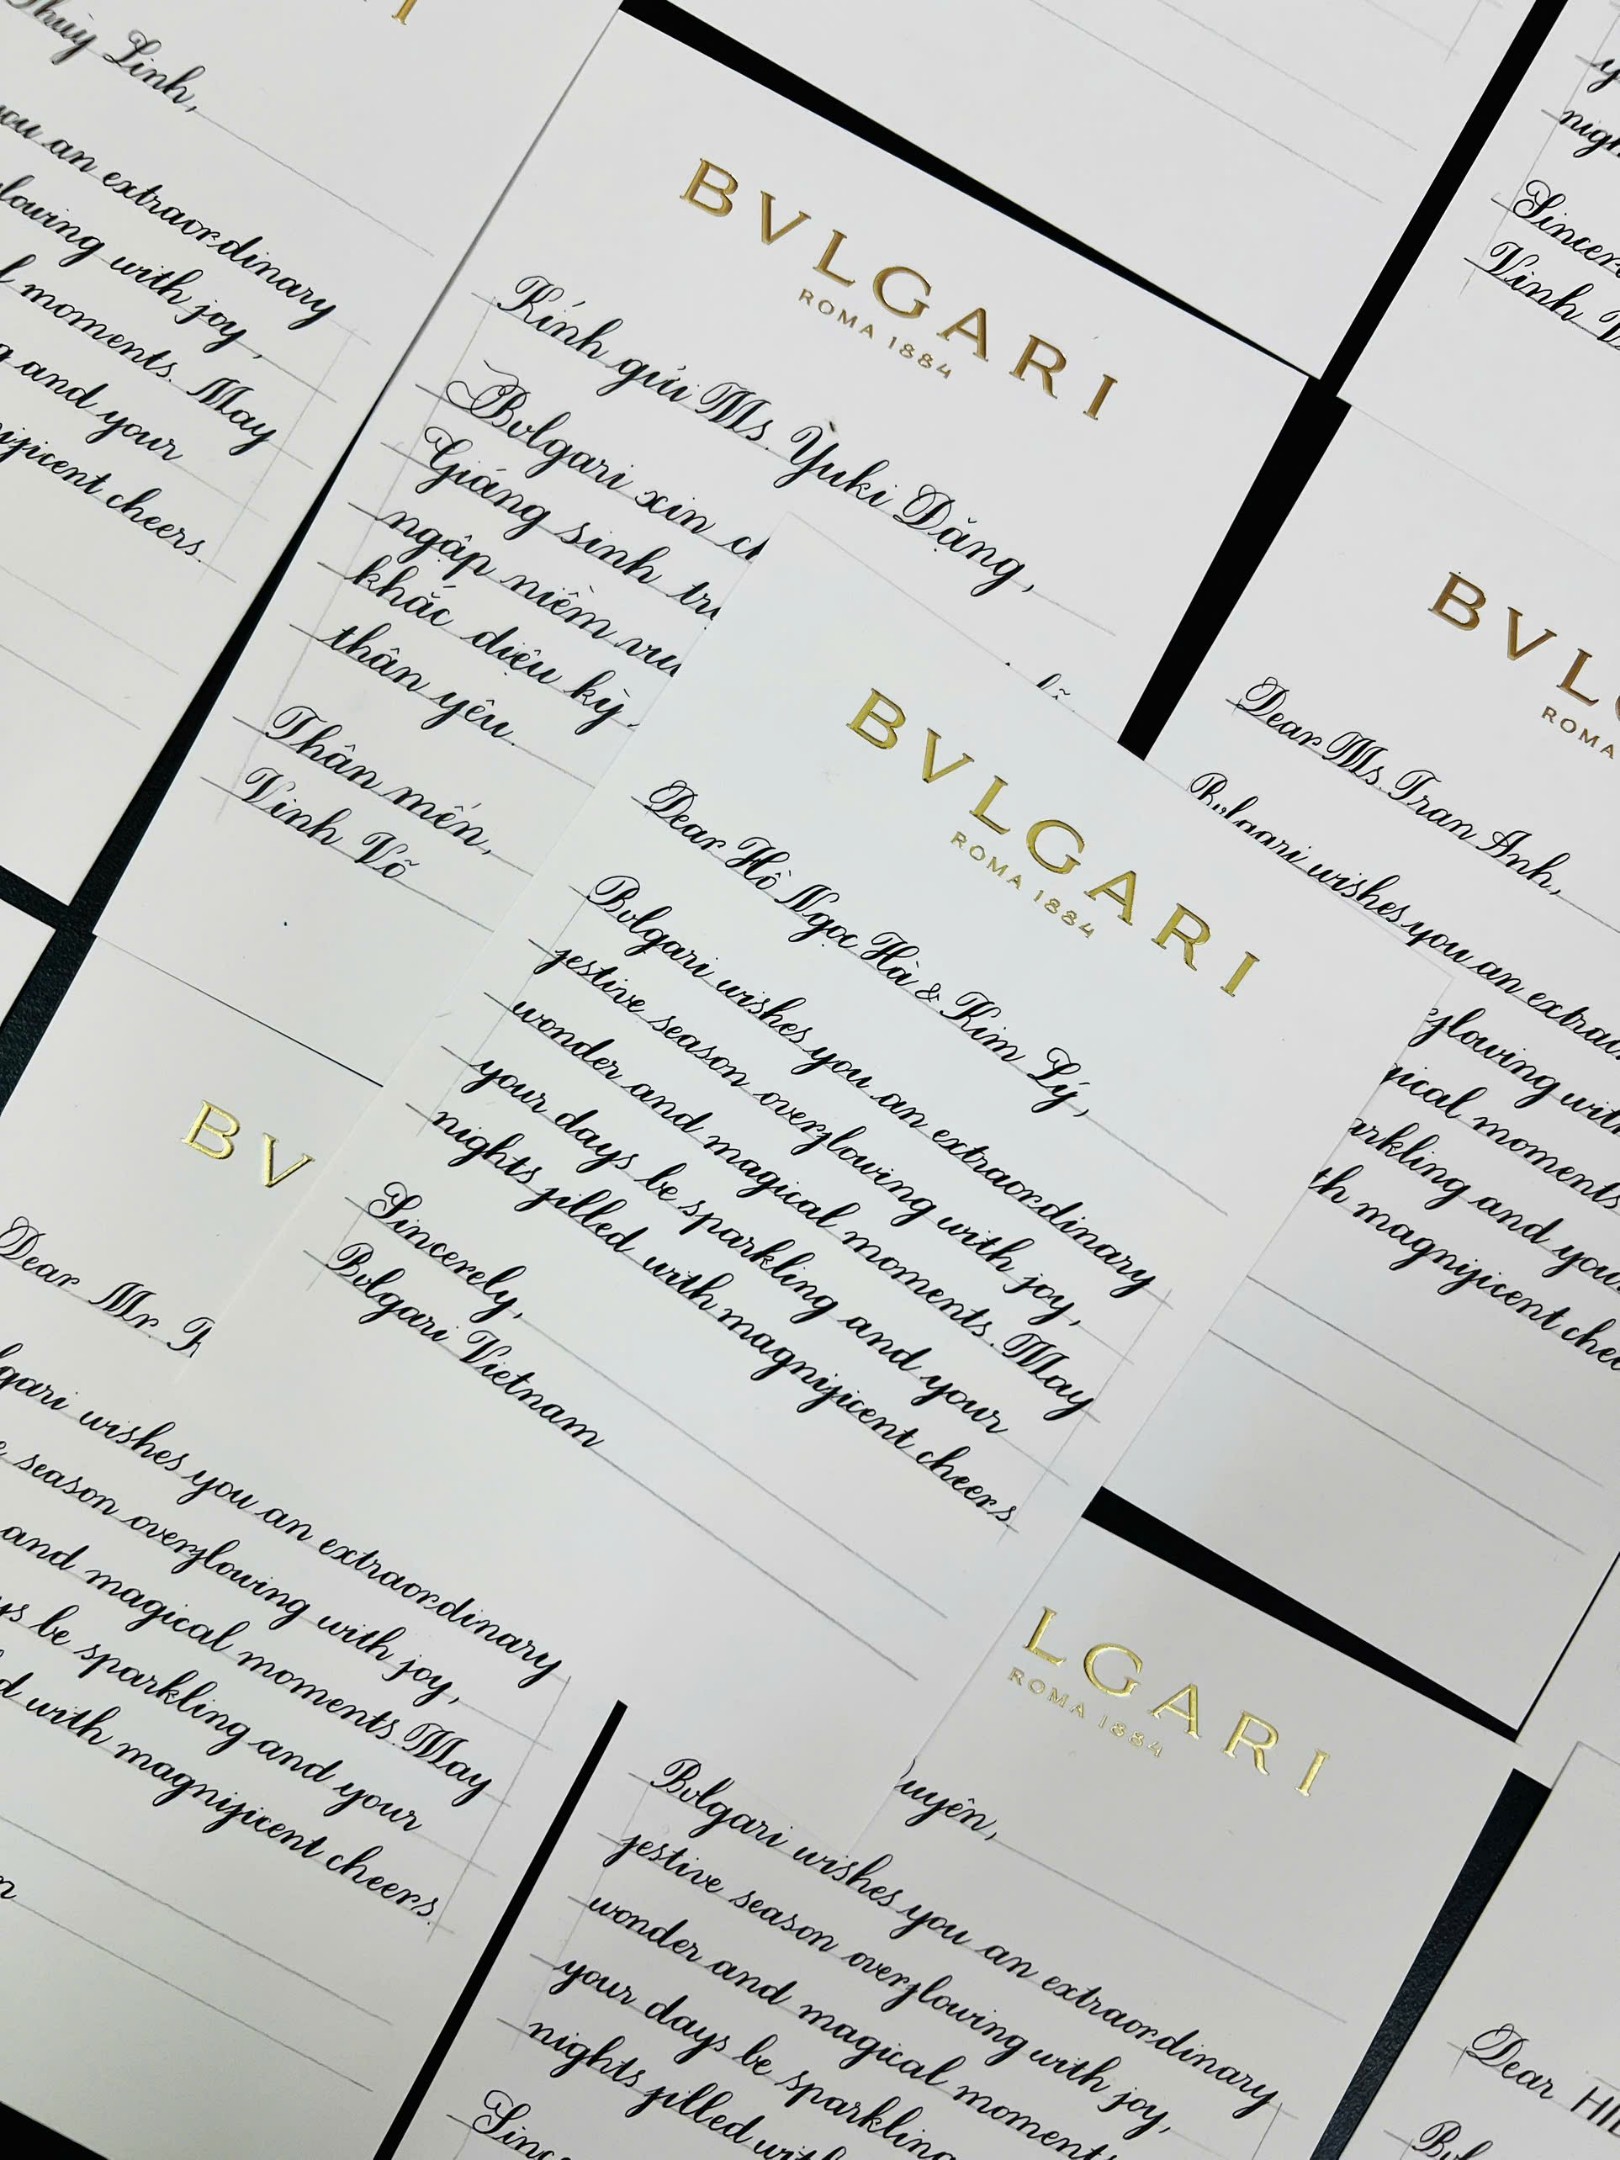 Thùy Linh,
you an extraordinary
with joy,
moments. May
and your
cheers.
BVLGARI
ROMA 1884
Kính gửi Ms. Yuki Đặng,
Bvlgari xin
Giáng sinh
ngập niềm
khắc diệu kỳ
thân yêu.
Thân mến,
Vinh Võ
Vinh
BVL
ROMA
Dear Ms. Tran Anh,
Bvlgari wishes you an
moments
and
magnificent
BVLGARI
ROMA 1884
Dear Hồ Ngọc Hà & Kim Lý,
Bvlgari wishes you an extraordinary
festive season overflowing with joy,
wonder and magical moments. May
your days be sparkling and your
nights filled with magnificent cheers.
Sincerely,
Bvlgari Vietnam
BV
Dear Mr.
wishes you an extraordinary
season overflowing with joy,
and magical moments. May
be sparkling and your
with magnificent cheers.
LGARI
ROMA 1884
Bvlgari wishes you an extraordinary
festive season overflowing with joy,
wonder and magical moments
your days be sparkling
nights filled with
Dear